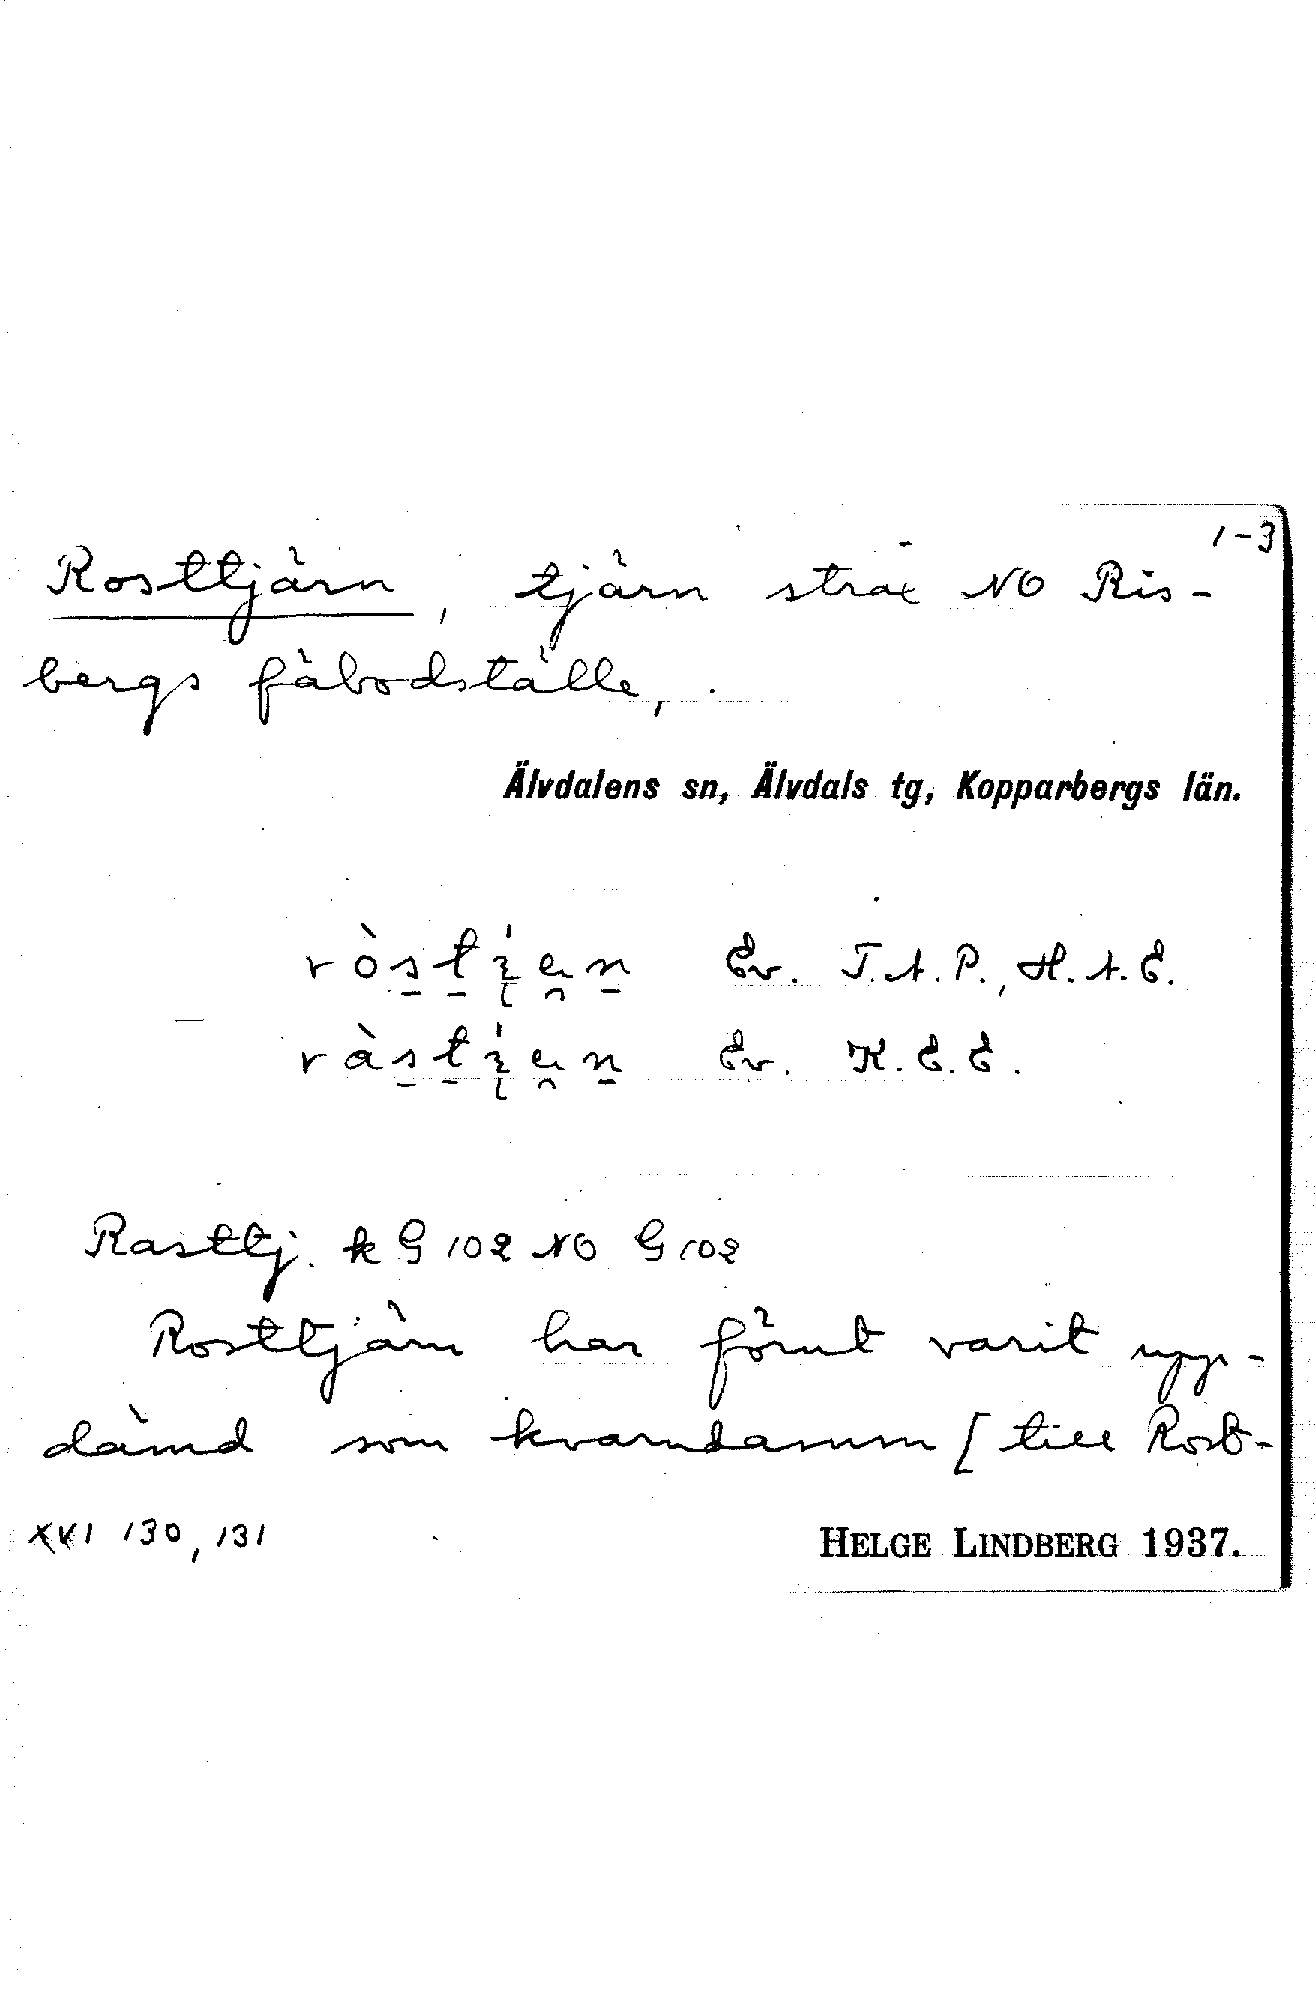 1-3
Rosttjärn, tjärn strax NO Ris-
bergs fäbodställe,
Älvdalens sn, Älvdals tg, Kopparbergs län.
Ev. T.A.P., H.A.E.
Ev. K.E.E.
Rasttj. k G 102 NO G 102
Rosttjärn har förut varit upp-
dämd som kvarndamm [ till Rost-
XVI 130, 131
HELGE LINDBERG 1937.